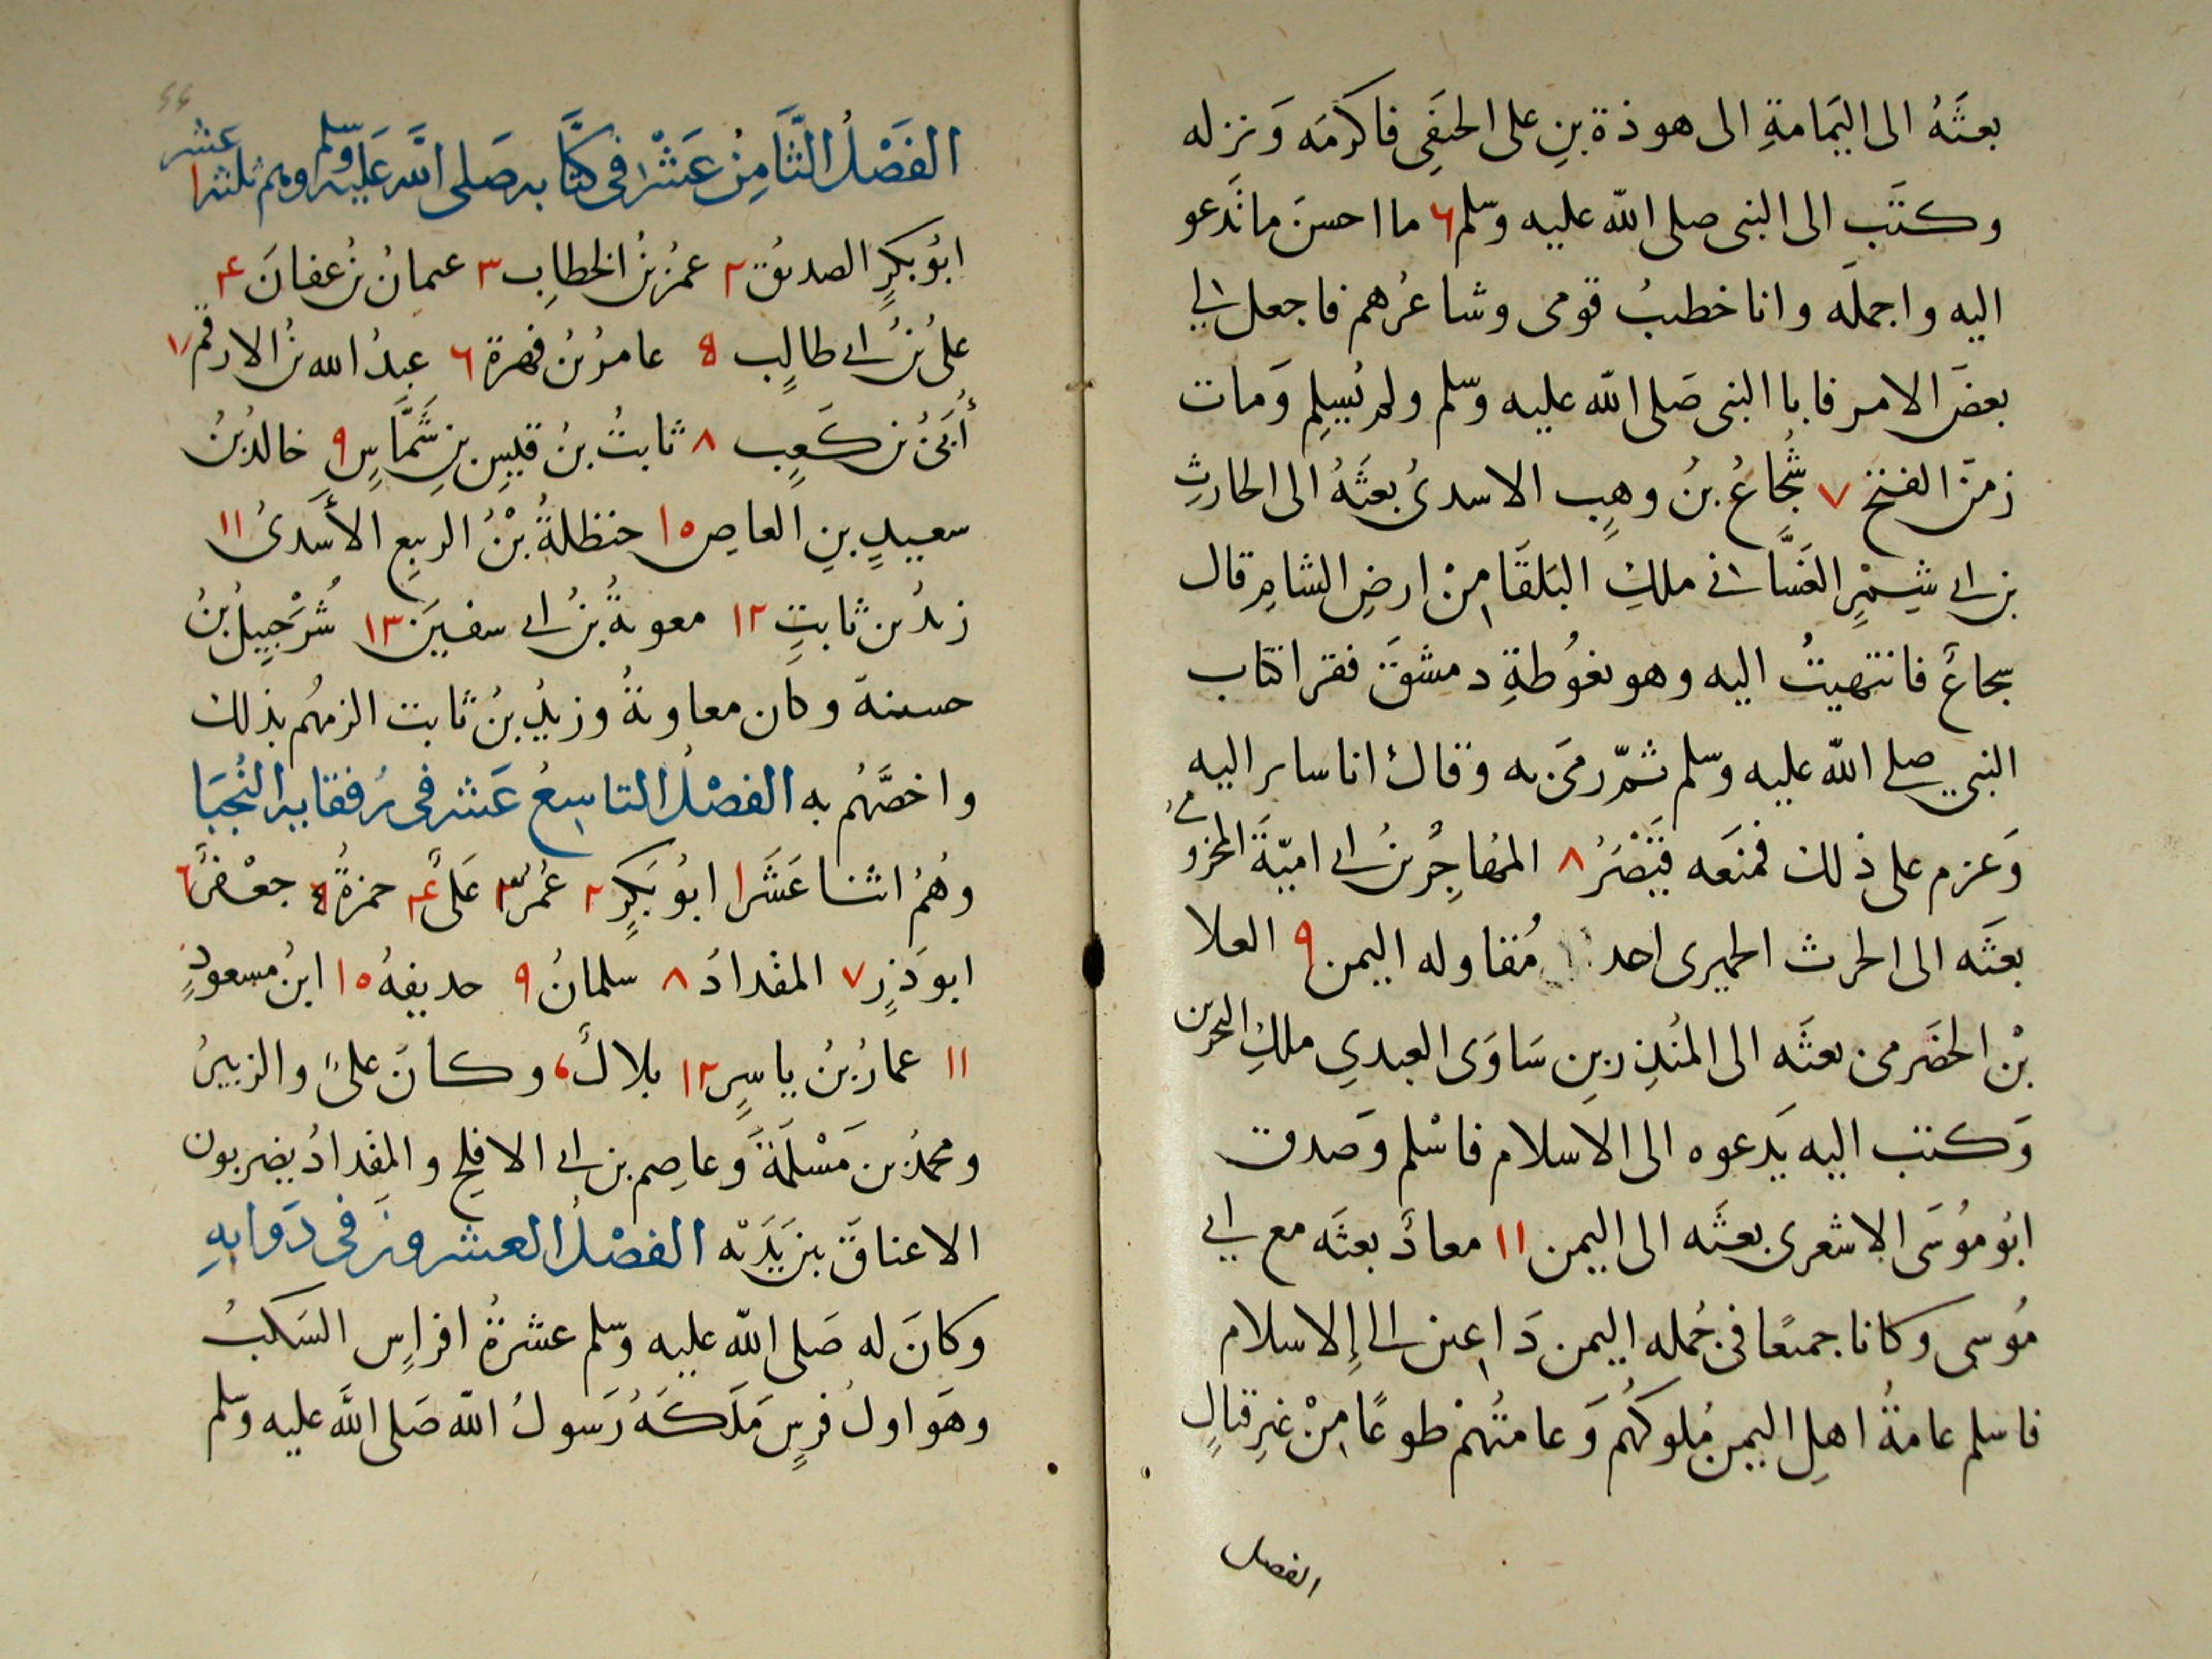 بعثَهُ الى اليَمامةِ الى هوذة بنِ على الحنفِى فاكرمَه وَنزله
وكتَب الى النبى صلى الله عليه وسلم ٦ ما احسنَ ما تَدعو
اليه واجملَه وانا خطيبُ قومى وشاعرُهم فاجعل لى
بعضَ الامر فابا النبى صَلى الله عليه وسلم ولم يُسلِم وَمات
زمنَ الفتح ٧ شُجاعُ بنُ وهبٍ الاسدىُ بعثَهُ الى الحارثِ
بن ابى شِمْرٍ الغسَّانى ملكِ البَلقَا مِنْ ارضِ الشامِ قال
سجاعُ فانتهيتُ اليه وهو بغوُطةِ دمشقَ فقرا كتاب
النبي صلى الله عليه وسلم ثمّ رمَى به وَقالَ انا ساير اليه
وَعزم على ذلك فمنَعه قَيْصَرُ ٨ المهُاجِرُ بنُ ابى اميّةَ المخزومى
بعثَه الى الحرث الحميرى احد مُقاوله اليمن ٩ العلا
بْن الحضَرمى بعثَه الى المنُذِر بنِ سَاوَى العبدي ملكِ البحرين
وَكتب اليه يَدعوه الى الاسلام فاسْلم وَصدق
ابُو موُسَى الاشعرى بعثَه الى اليمن ١١ معاذُ بعثَه مع ابي
مُوسى وكانا جميعًا فى جُمله اليمن دَاعين الى الِاسلام
فاسلم عامةُ اهلِ اليمن مُلوكهُم وَعامتُهمْ طوعًا مِنْ غيرِ قتالٍ
الفصل
٤٤
الفَصْلُ الثَّامِنُ عَشَرْ فى كتَّابه صَلى الله عَليه وسلم وهم ثلثة عشر ١
ابُو بكرٍ الصديقُ ٢ عمرُ بنُ الخطابِ ٣ عثمانُ بنُ عفانَ ٤
علىُ بنُ ابى طالبٍ ٥ عامرُ بنُ فهيرة ٦ عبدُ الله بنُ الارقمِ ٧
أُبَىُّ بن كَعبٍ ٨ ثابتُ بنُ قيسِ بنِ شَمَّاسٍ ٩ خالدُ بنُ
سعيدِ بنِ العاصِ ١٠ حنظلةُ بْنُ الربيعِ الأَسَدىُ ١١
زيدُ بن ثابتٍ ١٢ معويةُ بنُ ابى سفينَ ١٣ شُرَحْبِيلُ بنُ
حسنةَ وكان معاويةُ وزيدُ بنُ ثابت الزمهُم بذلك
واخصَّهُم به الفصْلُ التاسِعُ عَشر فى رُفقايه النُجبَا
وهُمُ اثنا عَشَر ١ ابُو بَكرٍ ٢ عُمرُ ٣ عَلىُ ٤ حمزةُ ٥ جعْفرُ ٦
ابو ذَرٍ ٧ المقدادُ ٨ سلمانُ ٩ حديفهُ ١٠ ابنُ مسعودٍ
١١ عمارُ بنُ ياسرٍ ١٢ بلالُ، وكانَ علىُ والزبيرُ
ومحمدُ بن مَسْلمَةَ وعاصِم بن ابى الافلحِ والمقدادُ يضربون
الاعناقَ بينَ يَدَيْه الفصْلُ العشرونَ فى دَوابهِ
وكانَ له صَلى الله عليه وسلم عشرةُ افراسٍ السَكبُ
وهَو اولُ فرسٍ مَلَكَهُ رَسولُ الله صَلى اللهَ عليه وسلم